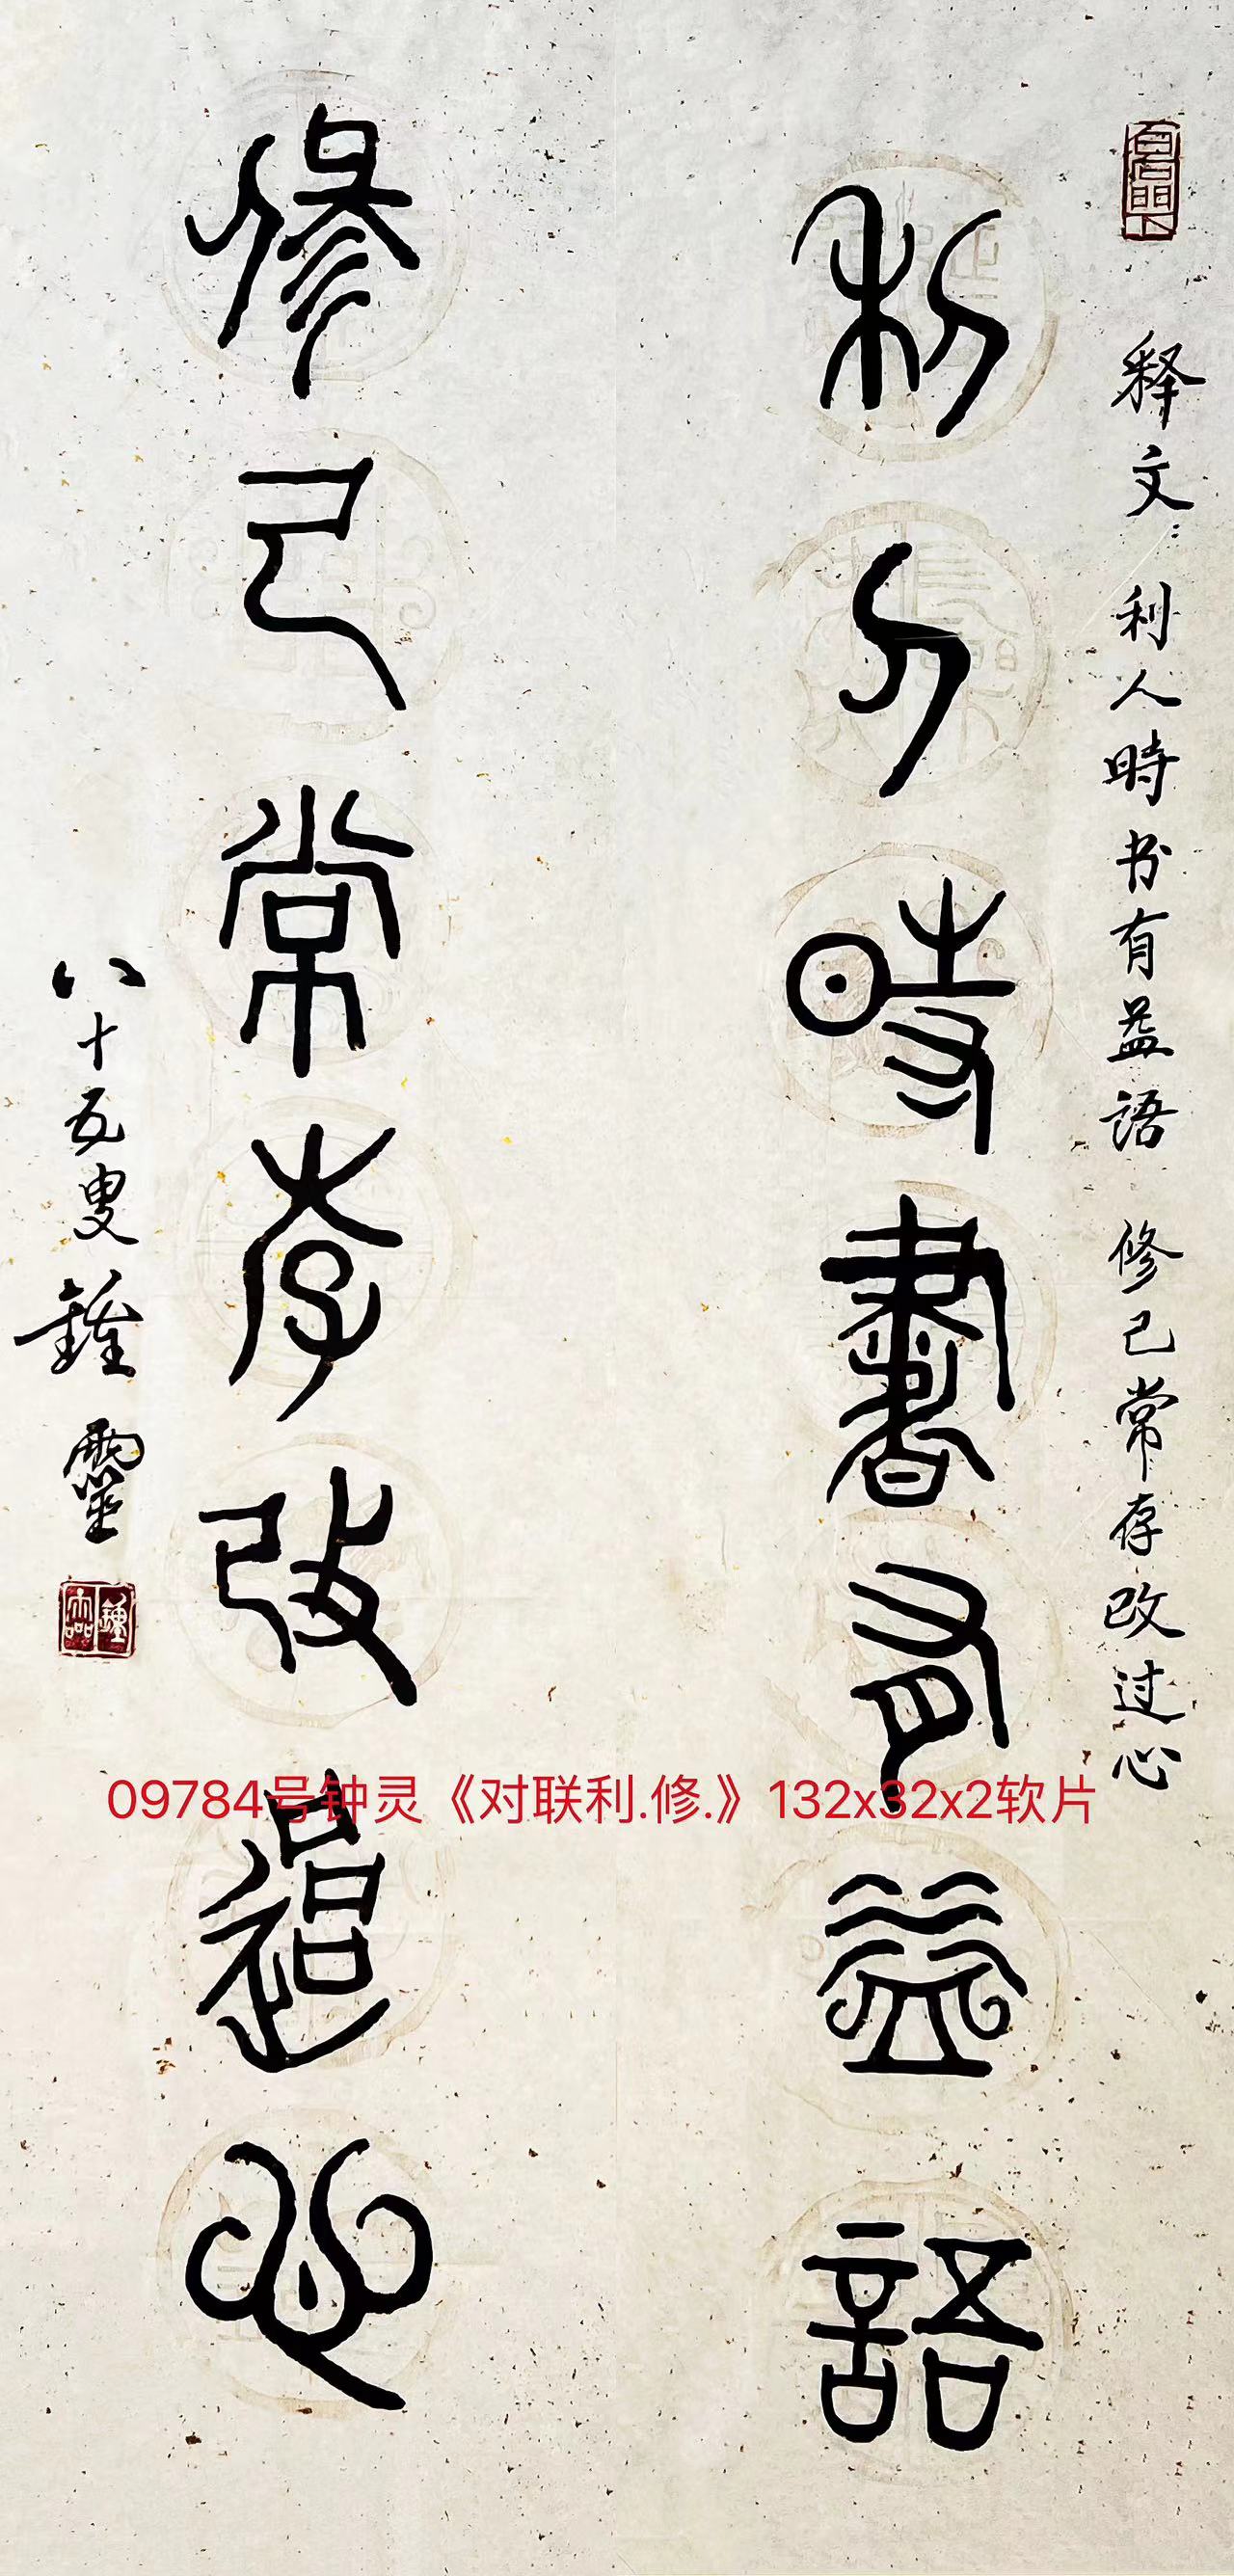 释文：利人時书有益語 修己常存改过心
利人時書有益語
修己常存改過心
八十五叟鍾靈
鍾靈
09784号钟灵《对联利.修.》132x32x2软片